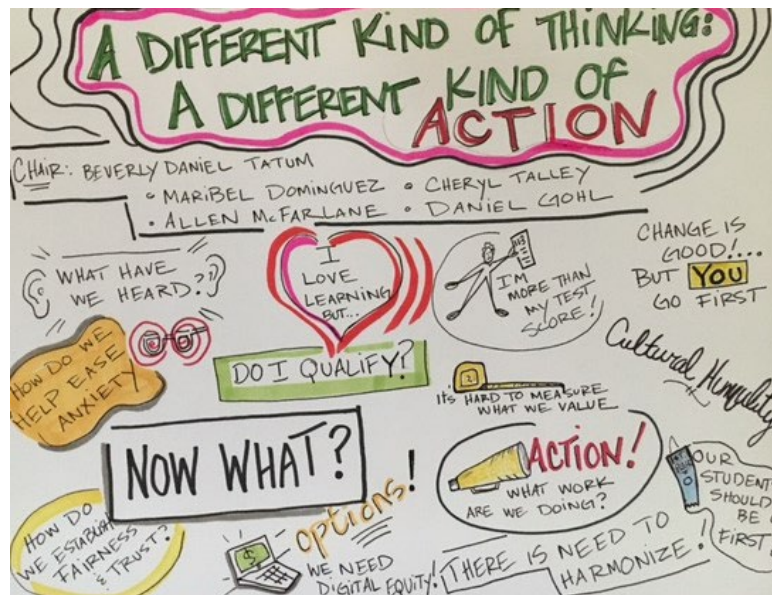 A DIFFERENT KIND OF THINKING:
A DIFFERENT KIND OF
ACTION
CHAIR: BEVERLY DANIEL TATUM
• MARIBEL DOMINGUEZ • CHERYL TALLEY
• ALLEN MCFARLANE • DANIEL GOHL
WHAT HAVE
WE HEARD?
I
LOVE
LEARNING
BUT...
I'M
MORE THAN
MY TEST
SCORE!
CHANGE IS
GOOD!...
BUT YOU
GO FIRST
HOW DO WE
HELP EASE
ANXIETY
DO I QUALIFY?
IT'S HARD TO MEASURE
WHAT WE VALUE
Cultural Humility
NOW WHAT?
ACTION!
WHAT WORK
ARE WE DOING?
OUR
STUDENT
SHOULD
BE
FIRST
HOW DO
WE ESTABLISH
FAIRNESS
& TRUST?
OPTIONS!
$
WE NEED
DIGITAL EQUITY!
THERE IS NEED TO
HARMONIZE!